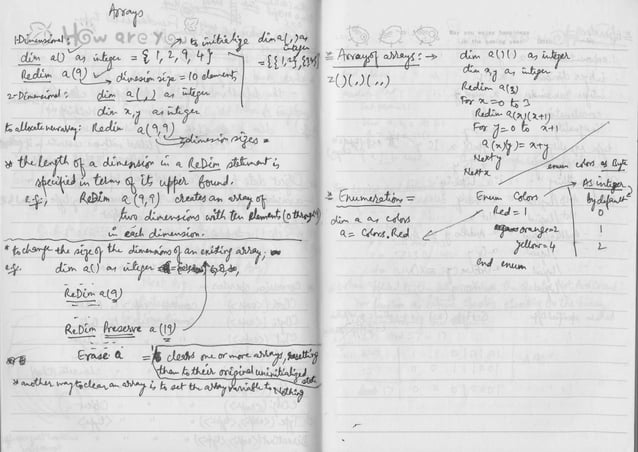 Arrays
How are yo
1-Dimensional: → to initialize dim a(,) as integer
dim a() as integer = {1, 2, 9, 4} = {{1,2},{3,4}}
Redim a(9) → dimension size = 10 elements,
2-Dimensional: dim a(,) as integer
dim x,y as integer
to allocate new array: Redim a(9,9) → dimension sizes =
the length of a dimension in a ReDim statement is
specified in terms of its upper bound.
e.g., ReDim a(9,9) creates an array of
two dimensions with ten elements (0 through 9)
in each dimension.
* to change the size of the dimensions of an existing array,
e.g. dim a() as integer
ReDim a(9)
ReDim Preserve a(19)
Erase a = clears one or more arrays, resetting
them to their original uninitialized state
another way to clear an array is to set the array variable to Nothing
Array of arrays: → dim a()() as integer
2()(,)(,,) dim x,y as integer
Redim a(3)
For x = 0 to 3
Redim a(x)(x+1)
For y = 0 to x+1
a(x)(y) = x+y
Next y
Next x
enum colors as Byte
As integer
by default
* Enumerations = Enum Colors
dim a as colors Red = 1 0
a = Colors.Red orange=2 1
yellow=4 2
end enum